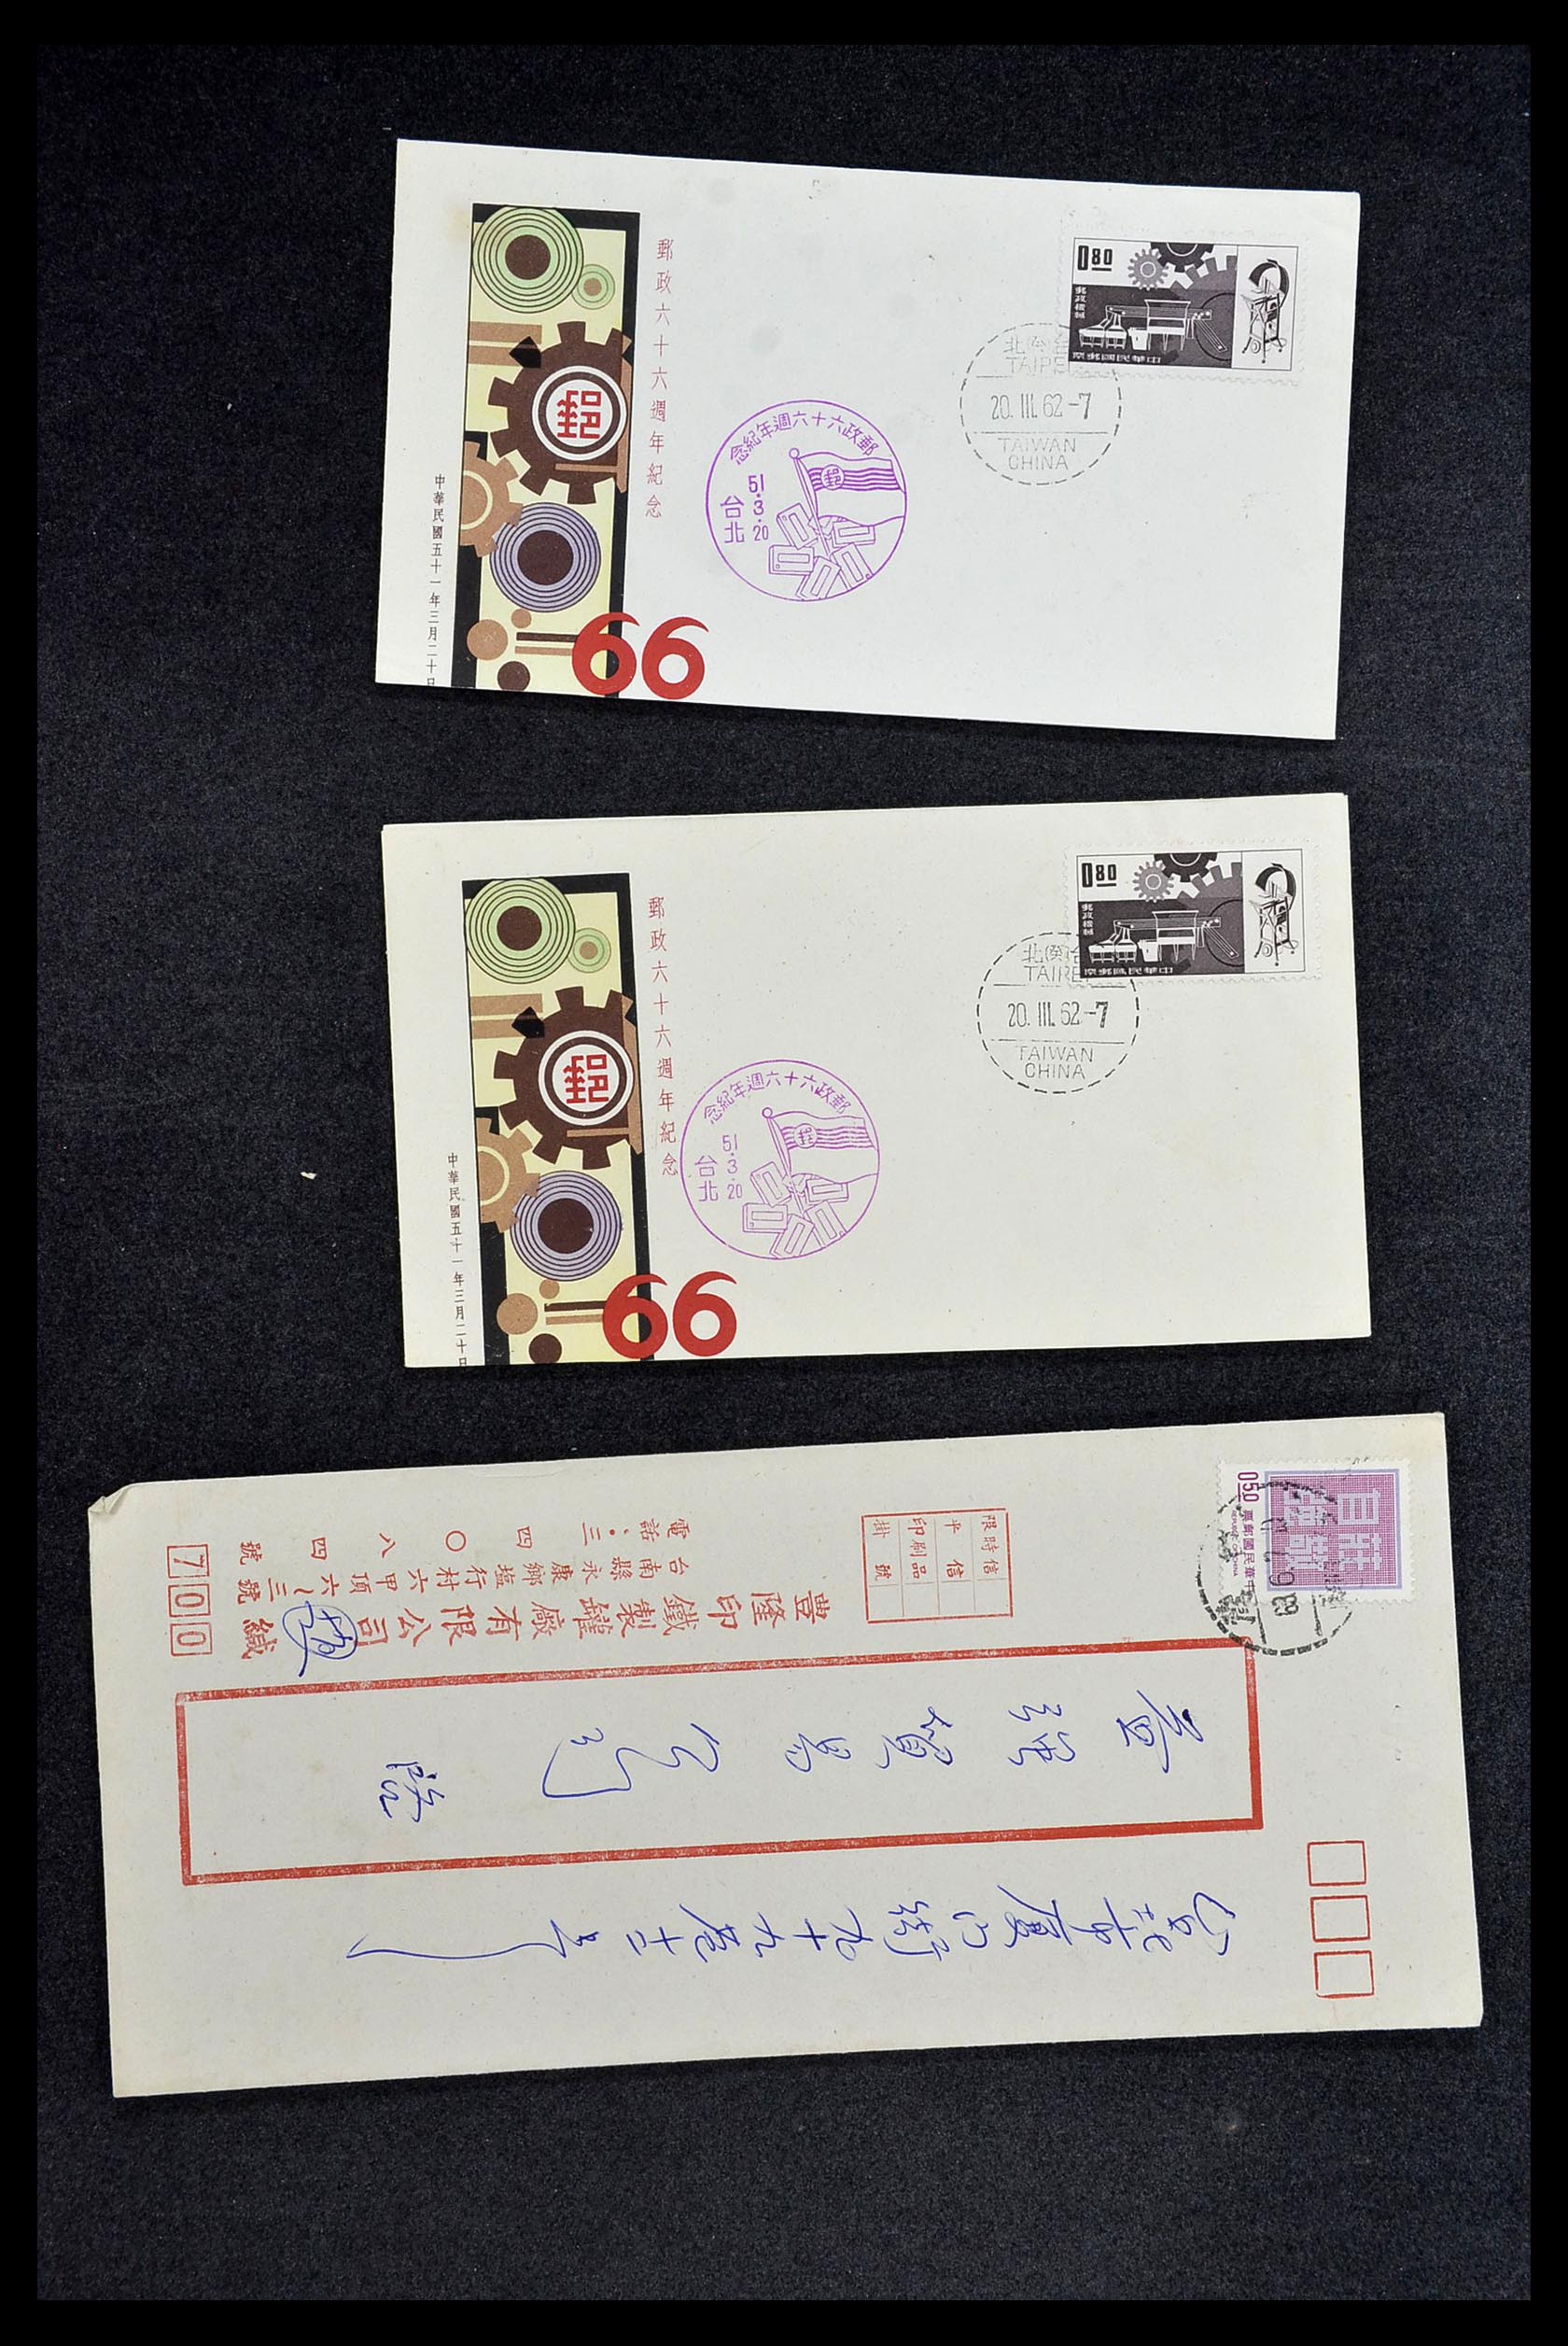 郵政六十六週年紀念
中華民國五十一年三月二十日
郵
66
郵政六十六週年紀念
51.3.20
台北
郵
TAIPEI
20. III. 62-7
TAIWAN
CHINA
0.80
郵政機械
中華民國郵票
郵政六十六週年紀念
中華民國五十一年三月二十日
郵
66
郵政六十六週年紀念
51.3.20
台北
郵
TAIPEI
20. III. 62-7
TAIWAN
CHINA
0.80
郵政機械
中華民國郵票
050
中華民國郵票
REPUBLIC OF CHINA
莊敬自強
限時信
平信
印刷品
掛號
豊隆印鐵製罐廠有限公司 緘
台南縣永康鄉塩行村六甲頂六~三號
電話:三四〇八四號
700
貿易公司